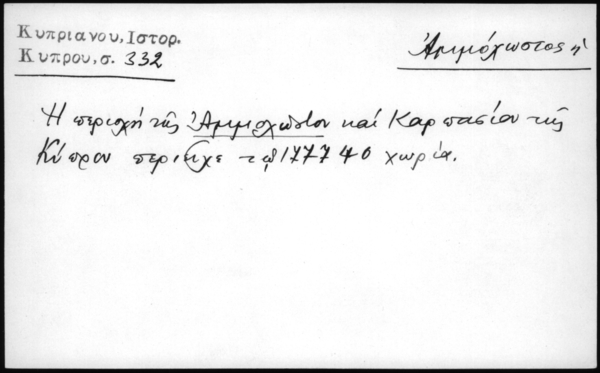 Κυπριανου, Ιστορ.
Κυπρου, σ. 332
Ἀμμόχωστος ἡ
Ἡ περιοχή τῆς Ἀμμοχώστου καί Καρπασίου τῆς
Κύπρου περιεῖχε τῷ 1777 40 χωρία.